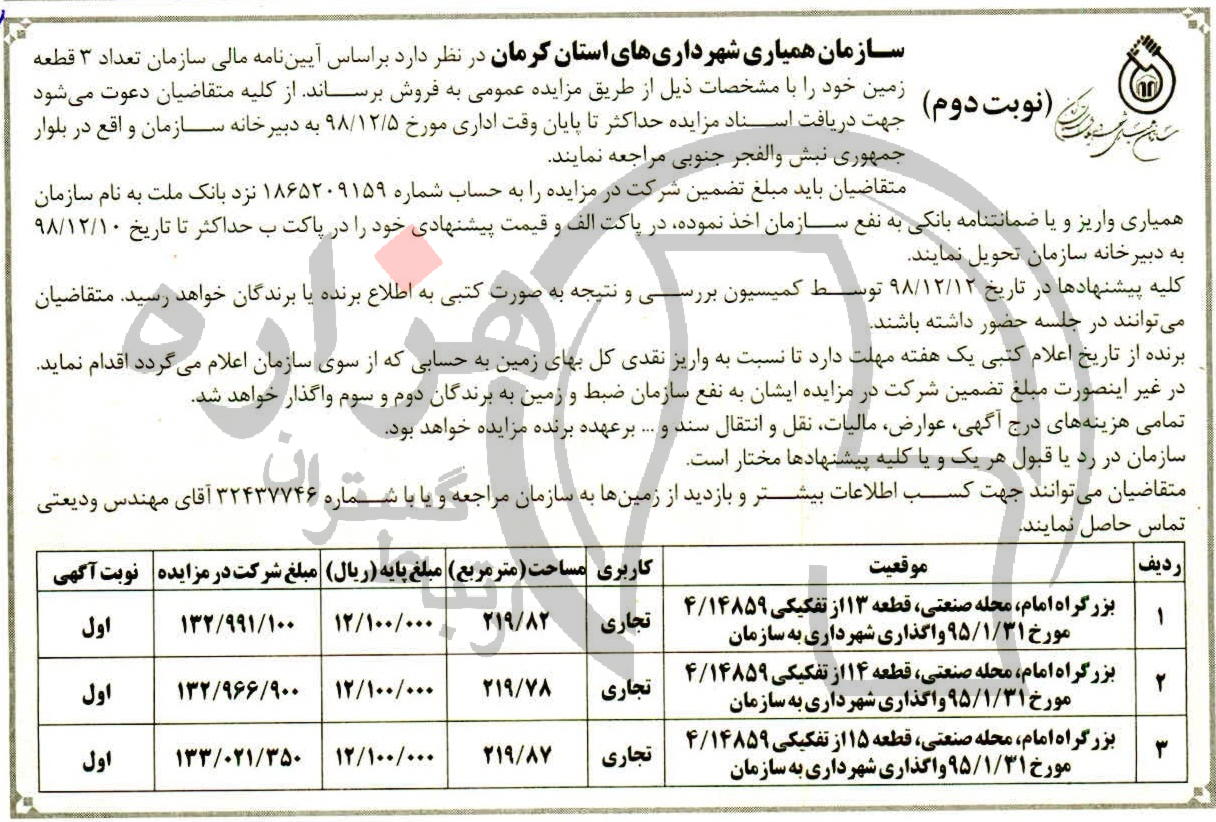 سازمان همیاری شهرداری‌های استان کرمان در نظر دارد براساس آیین‌نامه مالی سازمان تعداد ۳ قطعه
زمین خود را با مشخصات ذیل از طریق مزایده عمومی به فروش برساند. از کلیه متقاضیان دعوت می‌شود
(نوبت دوم)
جهت دریافت اسناد مزایده حداکثر تا پایان وقت اداری مورخ ۹۸/۱۲/۵ به دبیرخانه سازمان و اقع در بلوار
جمهوری نبش والفجر جنوبی مراجعه نمایند.
متقاضیان باید مبلغ تضمین شرکت در مزایده را به حساب شماره ۱۸۶۵۲۰۹۱۵۹ نزد بانک ملت به نام سازمان
همیاری واریز و یا ضمانتنامه بانکی به نفع سازمان اخذ نموده، در پاکت الف و قیمت پیشنهادی خود را در پاکت ب حداکثر تا تاریخ ۹۸/۱۲/۱۰
به دبیرخانه سازمان تحویل نمایند.
کلیه پیشنهادها در تاریخ ۹۸/۱۲/۱۲ توسط کمیسیون بررسی و نتیجه به صورت کتبی به اطلاع برنده یا برندگان خواهد رسید. متقاضیان
می‌توانند در جلسه حضور داشته باشند.
برنده از تاریخ اعلام کتبی یک هفته مهلت دارد تا نسبت به واریز نقدی کل بهای زمین به حسابی که از سوی سازمان اعلام می‌گردد اقدام نماید.
در غیر اینصورت مبلغ تضمین شرکت در مزایده ایشان به نفع سازمان ضبط و زمین به برندگان دوم و سوم واگذار خواهد شد.
تمامی هزینه‌های درج آگهی، عوارض، مالیات، نقل و انتقال سند و ... برعهده برنده مزایده خواهد بود.
سازمان در رد یا قبول هر یک و یا کلیه پیشنهادها مختار است.
متقاضیان می‌توانند جهت کسب اطلاعات بیشتر و بازدید از زمین‌ها به سازمان مراجعه و یا با شماره ۳۲۴۳۷۷۴۶ آقای مهندس ودیعتی
تماس حاصل نمایند.
ردیف موقعیت کاربری مساحت(مترمربع) مبلغ پایه(ریال) مبلغ شرکت در مزایده نوبت آگهی
۱ بزرگراه امام، محله صنعتی، قطعه ۱۳از تفکیکی ۴/۱۴۸۵۹ تجاری ۲۱۹/۸۲ ۱۲/۱۰۰/۰۰۰ ۱۳۲/۹۹۱/۱۰۰ اول
مورخ ۹۵/۱/۳۱واگذاری شهرداری به سازمان
۲ بزرگراه امام، محله صنعتی، قطعه ۱۴از تفکیکی ۴/۱۴۸۵۹ تجاری ۲۱۹/۷۸ ۱۲/۱۰۰/۰۰۰ ۱۳۲/۹۶۶/۹۰۰ اول
مورخ ۹۵/۱/۳۱واگذاری شهرداری به سازمان
۳ بزرگراه امام، محله صنعتی، قطعه ۱۵از تفکیکی ۴/۱۴۸۵۹ تجاری ۲۱۹/۸۷ ۱۲/۱۰۰/۰۰۰ ۱۳۳/۰۲۱/۳۵۰ اول
مورخ ۹۵/۱/۳۱واگذاری شهرداری به سازمان
هزاره
گستران
ارتباط